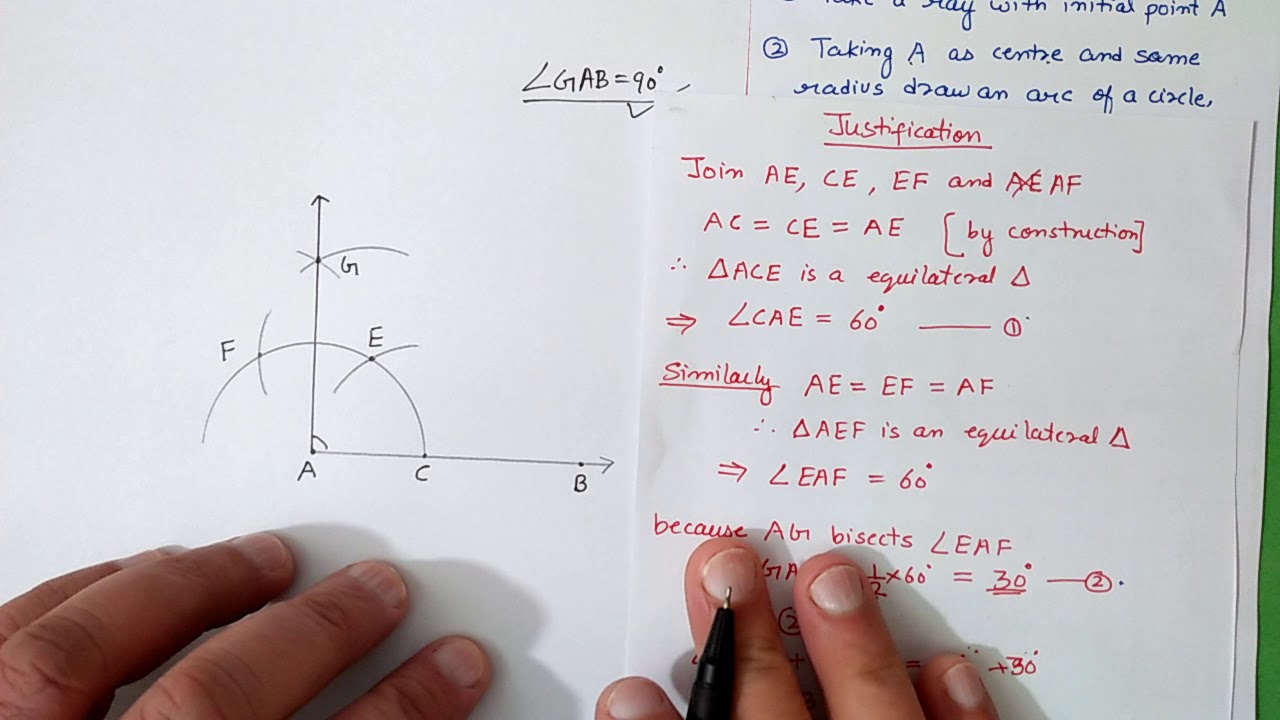 with initial point A
② Taking A as centre and same
radius draw an arc of a circle,
∠GAB = 90°
Justification
Join AE, CE, EF and AE AF
AC = CE = AE [by construction]
∴ △ACE is a equilateral △
⇒ ∠CAE = 60° —— ①
Similarly AE = EF = AF
∴ △AEF is an equilateral △
⇒ ∠EAF = 60°
because AG bisects ∠EAF
GA 1/2 × 60° = 30° — ②
②
+ = +30°
G
F
E
A
C
B